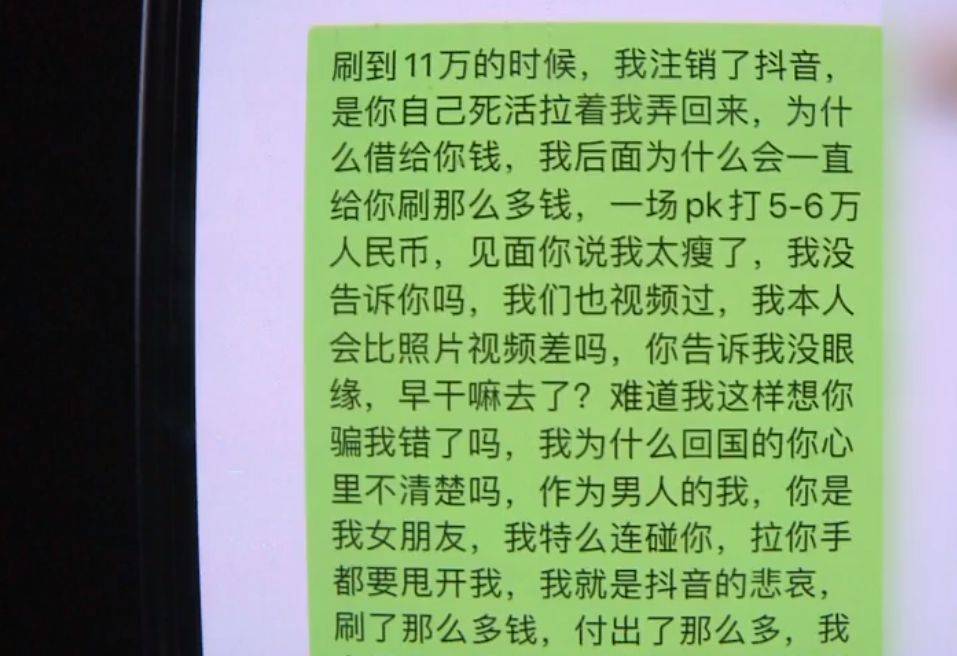 刷到11万的时候，我注销了抖音，
是你自己死活拉着我弄回来，为什
么借给你钱，我后面为什么会一直
给你刷那么多钱，一场pk打5-6万
人民币，见面你说我太瘦了，我没
告诉你吗，我们也视频过，我本人
会比照片视频差吗，你告诉我没眼
缘，早干嘛去了？难道我这样想你
骗我错了吗，我为什么回国的你心
里不清楚吗，作为男人的我，你是
我女朋友，我特么连碰你，拉你手
都要甩开我，我就是抖音的悲哀，
刷了那么多钱，付出了那么多，我